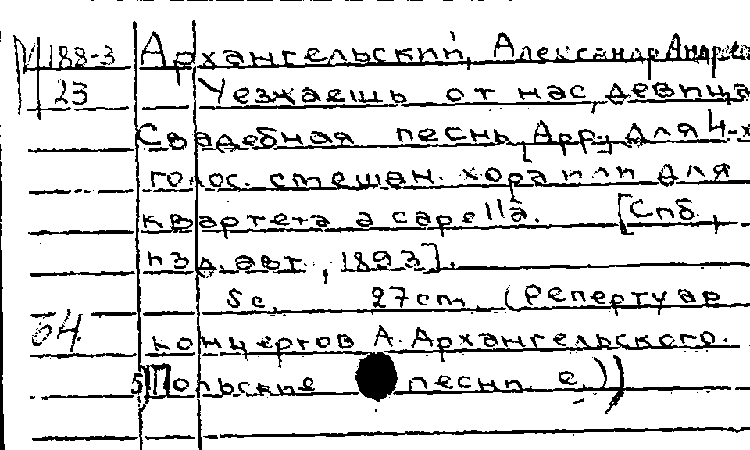 М 188-3 Архангельский, Александр Андрее
23 Уезжаешь от нас, девица
Свадебная песнь, Арр. для 4-х
голос. смешан. хора или для
квартета a capella. [Спб.,
изд. авт., 1893].
8 с. 27 cm. (Репертуар
64 концертов А. Архангельского.
5) Польские песни. е.))